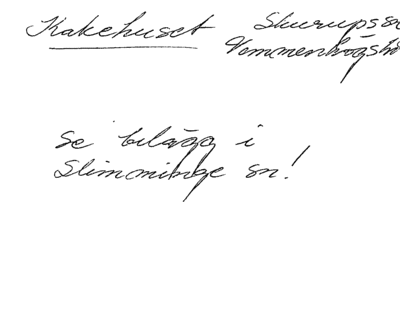 Kakehuset Skurups sn
Vemmenhögs hd
se belägg i
Slimminge sn!